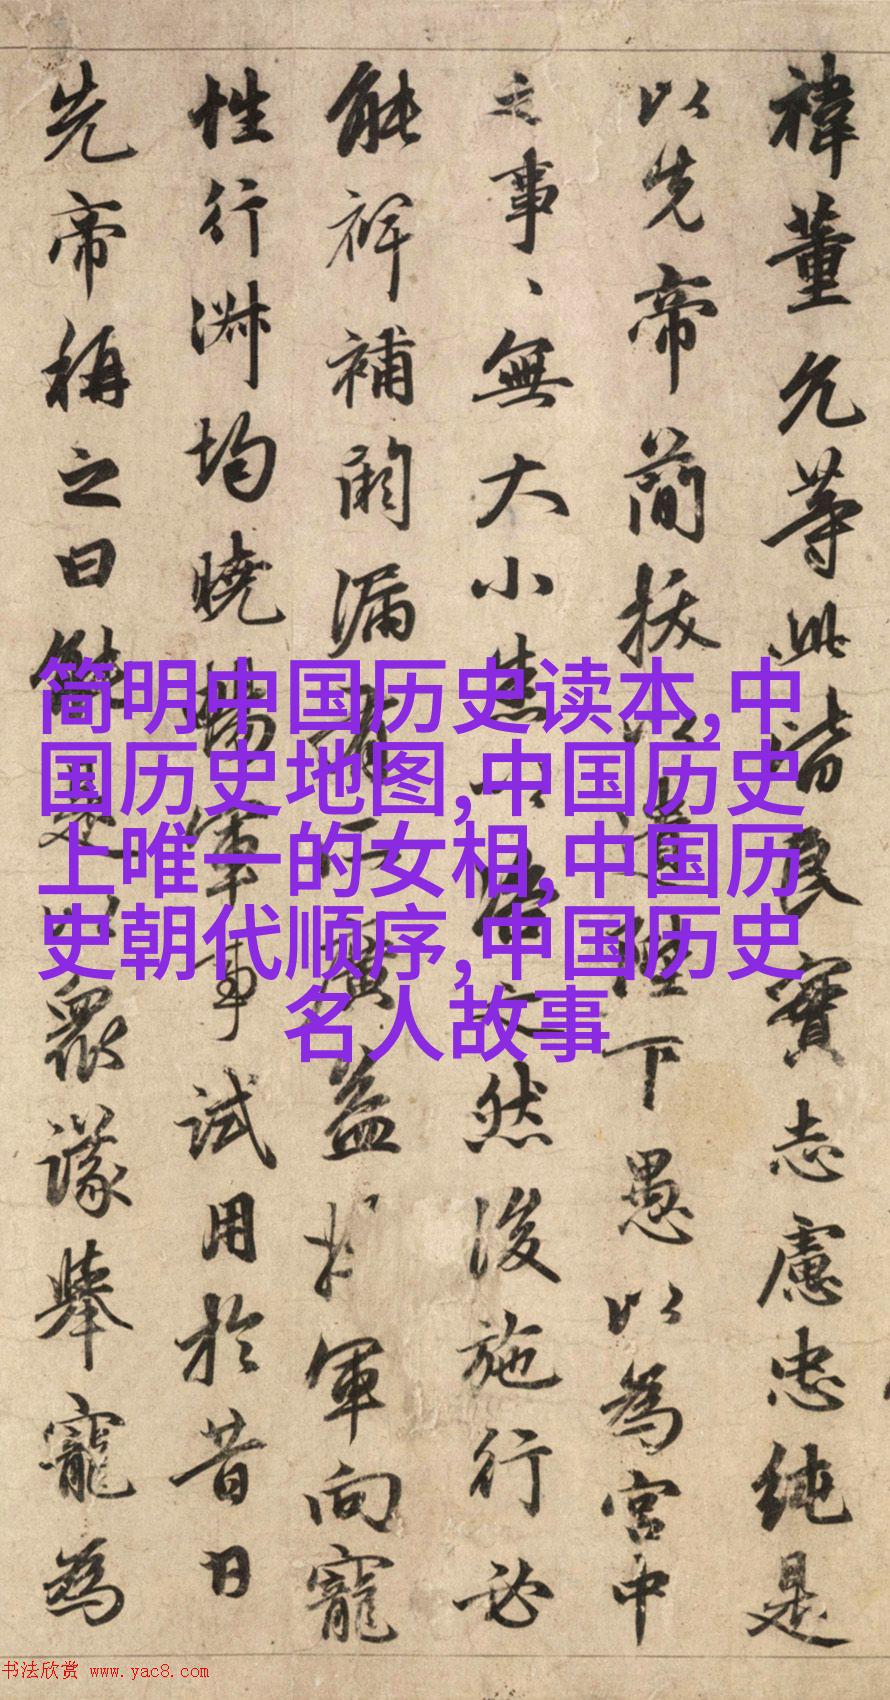 禕董允等此皆良實志慮忠純是
以先帝簡拔以遺陛下愚以為宮中
之事、無大小悉以咨之然後施行必
能裨補闕漏有所廣益將軍向寵
性行淑均曉暢軍事試用於昔日
先帝稱之曰能是以衆議舉寵為
简明中国历史读本,中
国历史地图,中国历史
上唯一的女相,中国历
史朝代顺序,中国历史
名人故事
书法欣赏 www.yac8.com